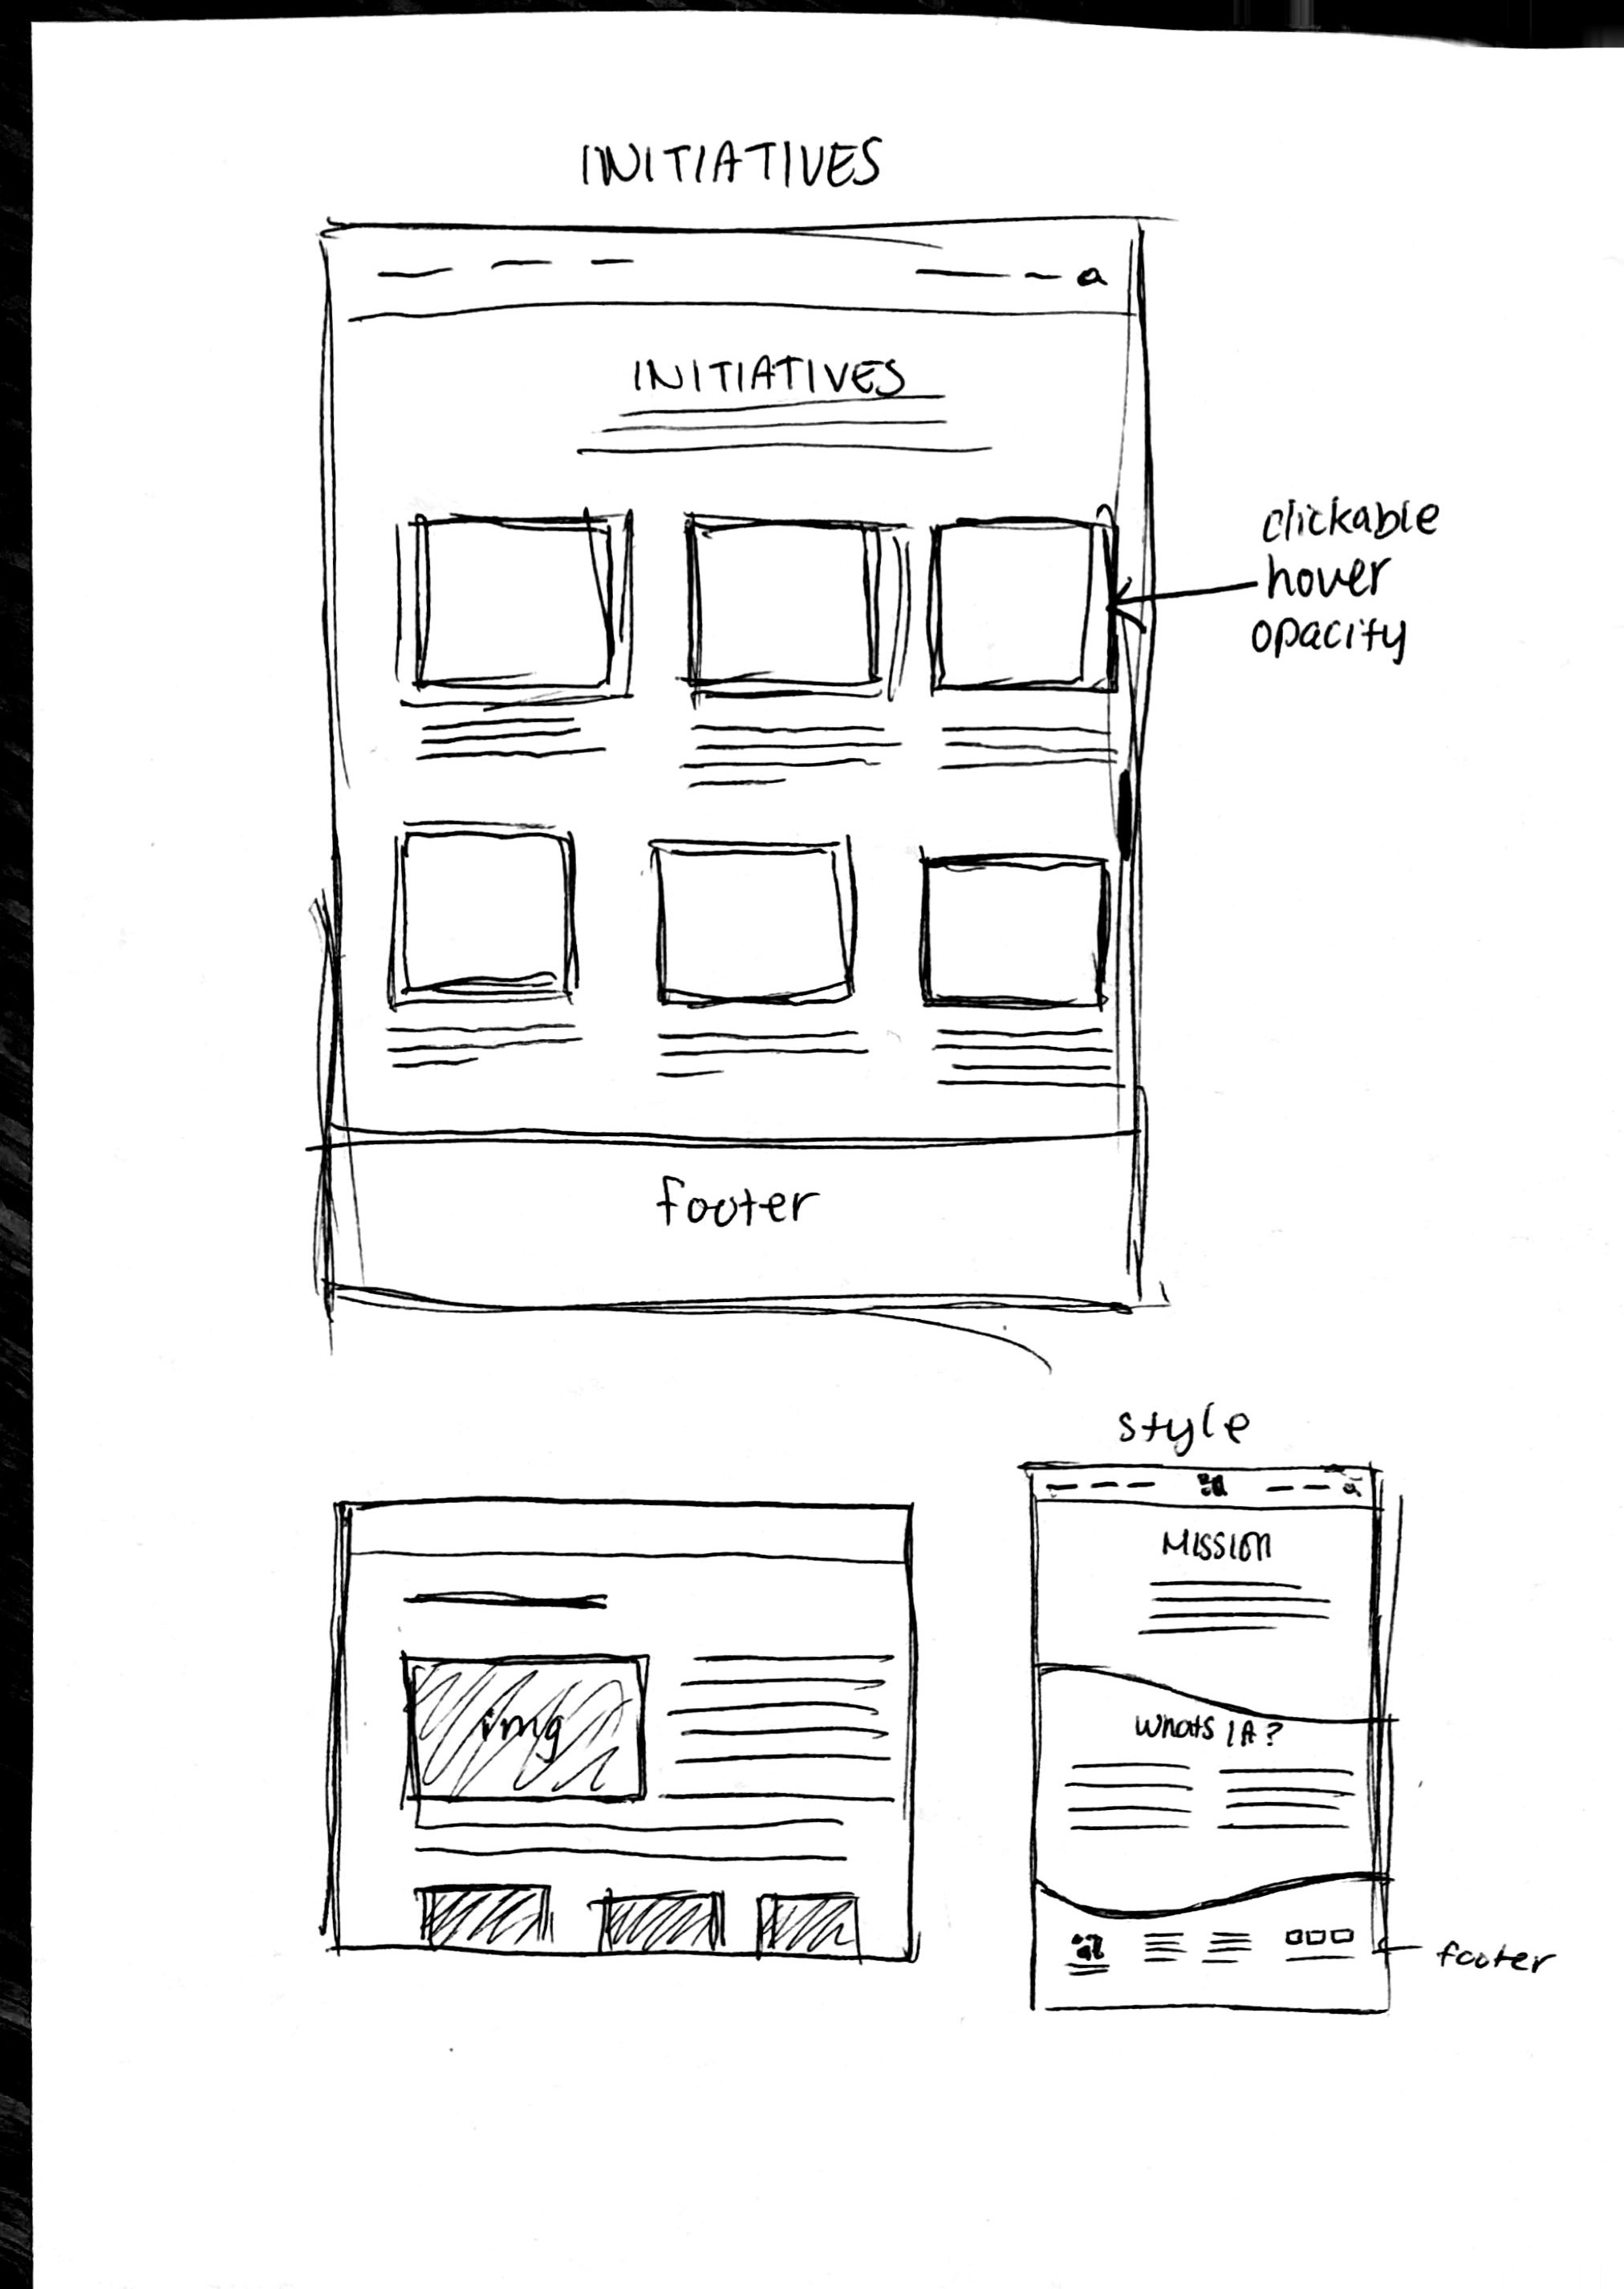 INITIATIVES
INITIATIVES
clickable
hover
opacity
footer
style
MISSION
img
Whats IA?
footer